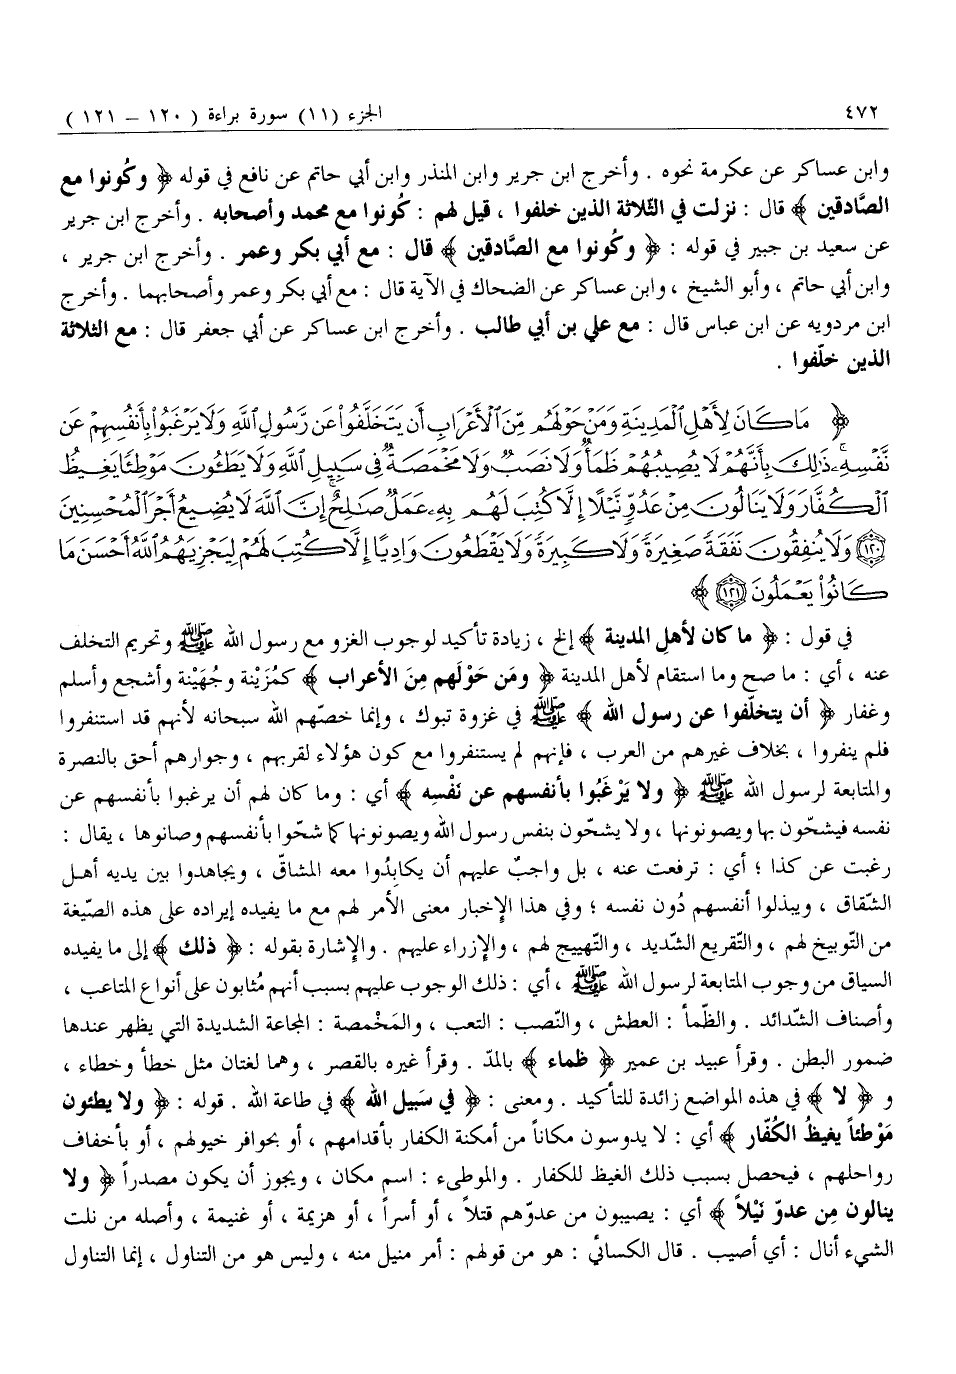 ٤٧٢ الجزء (١١) سورة براءة ( ١٢٠ – ١٢١ )
وابن عساكر عن عكرمة نحوه . وأخرج ابن جرير وابن المنذر وابن أبي حاتم عن نافع في قوله ﴿ وكُونوا مع
الصَّادقين ﴾ قال : نزلت في الثّلاثة الذين خلفوا ، قيل لهم : كُونوا مع محمد وأصحابه . وأخرج ابن جرير
عن سعيد بن جبير في قوله : ﴿ وكُونوا مع الصَّادقين ﴾ قال : مع أبي بكر وعمر . وأخرج ابن جرير ،
وابن أبي حاتم ، وأبو الشيخ ، وابن عساكر عن الضحاك في الآية قال : مع أبي بكر وعمر وأصحابهما . وأخرج
ابن مردويه عن ابن عباس قال : مع علي بن أبي طالب . وأخرج ابن عساكر عن أبي جعفر قال : مع الثلاثة
الذين خلّفوا .
﴿ مَاكَانَ لِأَهْلِ ٱلْمَدِينَةِ وَمَنْ حَوْلَهُم مِّنَ ٱلْأَعْرَابِ أَن يَتَخَلَّفُوا۟ عَن رَّسُولِ ٱللَّهِ وَلَا يَرْغَبُوا۟ بِأَنفُسِهِمْ عَن
نَّفْسِهِۦ ۚ ذَٰلِكَ بِأَنَّهُمْ لَا يُصِيبُهُمْ ظَمَأٌ وَلَا نَصَبٌ وَلَا مَخْمَصَةٌ فِى سَبِيلِ ٱللَّهِ وَلَا يَطَـُٔونَ مَوْطِئًا يَغِيظُ
ٱلْكُفَّارَ وَلَا يَنَالُونَ مِنْ عَدُوٍّ نَّيْلًا إِلَّا كُتِبَ لَهُم بِهِۦ عَمَلٌ صَـٰلِحٌ إِنَّ ٱللَّهَ لَا يُضِيعُ أَجْرَ ٱلْمُحْسِنِينَ
١٢٠ وَلَا يُنفِقُونَ نَفَقَةً صَغِيرَةً وَلَا كَبِيرَةً وَلَا يَقْطَعُونَ وَادِيًا إِلَّا كُتِبَ لَهُمْ لِيَجْزِيَهُمُ ٱللَّهُ أَحْسَنَ مَا
كَانُوا۟ يَعْمَلُونَ ١٢١ ﴾
في قول : ﴿ ما كان لأهل المدينة ﴾ إلخ ، زيادة تأكيد لوجوب الغزو مع رسول الله ﷺ وتحريم التخلف
عنه ، أي : ما صح وما استقام لأهل المدينة ﴿ ومَن حَوْلَهم مِنَ الأعراب ﴾ كمُزَيْنة وجُهَيْنة وأشجع وأسلم
وغفار ﴿ أن يتخلّفوا عن رسول الله ﴾ ﷺ في غزوة تبوك ، وإنما خصّهم الله سبحانه لأنهم قد استنفروا
فلم ينفروا ، بخلاف غيرهم من العرب ، فإنهم لم يستنفروا مع كون هؤلاء لقربهم ، وجوارهم أحق بالنصرة
والمتابعة لرسول الله ﷺ ﴿ ولا يَرْغَبُوا بأنفسهم عن نَفْسِه ﴾ أي : وما كان لهم أن يرغبوا بأنفسهم عن
نفسه فيشحّون بها ويصونونها ، ولا يشحّون بنفس رسول الله ويصونونها كما شحّوا بأنفسهم وصانوها ، يقال :
رغبت عن كذا ؛ أي : ترفعت عنه ، بل واجبٌ عليهم أن يكابِدُوا معه المشاقّ ، ويجاهدوا بين يديه أهل
الشّقاق ، ويبذلوا أنفسهم دُون نفسه ؛ وفي هذا الإِخبار معنى الأمر لهم مع ما يفيده إيراده على هذه الصّيغة
من التّوبيخ لهم ، والتّقريع الشّديد ، والتّهييج لهم ، والإِزراء عليهم . والإشارة بقوله : ﴿ ذلك ﴾ إلى ما يفيده
السياق من وجوب المتابعة لرسول الله ﷺ ، أي : ذلك الوجوب عليهم بسبب أنهم مُثابون على أنواع المتاعب ،
وأصناف الشّدائد . والظّمأ : العطش ، والنّصب : التعب ، والمَخْمصة : المجاعة الشديدة التي يظهر عندها
ضمور البطن . وقرأ عبيد بن عمير ﴿ ظماء ﴾ بالمدّ . وقرأ غيره بالقصر ، وهما لغتان مثل خطأ وخطاء ،
و ﴿ لا ﴾ في هذه المواضع زائدة للتأكيد . ومعنى : ﴿ في سَبيل الله ﴾ في طاعة الله . قوله : ﴿ ولا يطئون
مَوْطئاً يغيظُ الكُفّار ﴾ أي : لا يدوسون مكاناً من أمكنة الكفار بأقدامهم ، أو بحوافر خيولهم ، أو بأخفاف
رواحلهم ، فيحصل بسبب ذلك الغيظ للكفار . والموطىء : اسم مكان ، ويجوز أن يكون مصدراً ﴿ ولا
ينالون مِن عدوّ نَيْلاً ﴾ أي : يصيبون من عدوّهم قتلاً ، أو أسراً ، أو هزيمة ، أو غنيمة ، وأصله من نلت
الشيء أنال : أي أصيب . قال الكسائي : هو من قولهم : أمر منيل منه ، وليس هو من التناول ، إنما التناول